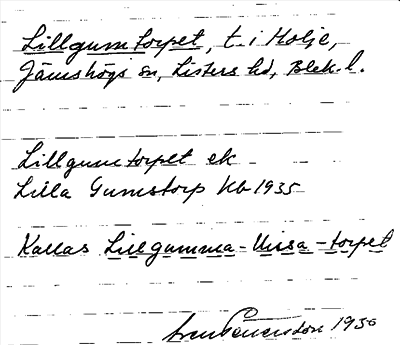 Lillgumtorpet, t. i Holje,
Jämshögs sn, Listers hd, Blek. l.
Lillgumtorpet ek
Lilla Gumstorp kb 1935
Kallas Lillgumma-Nissa-torpet
1950